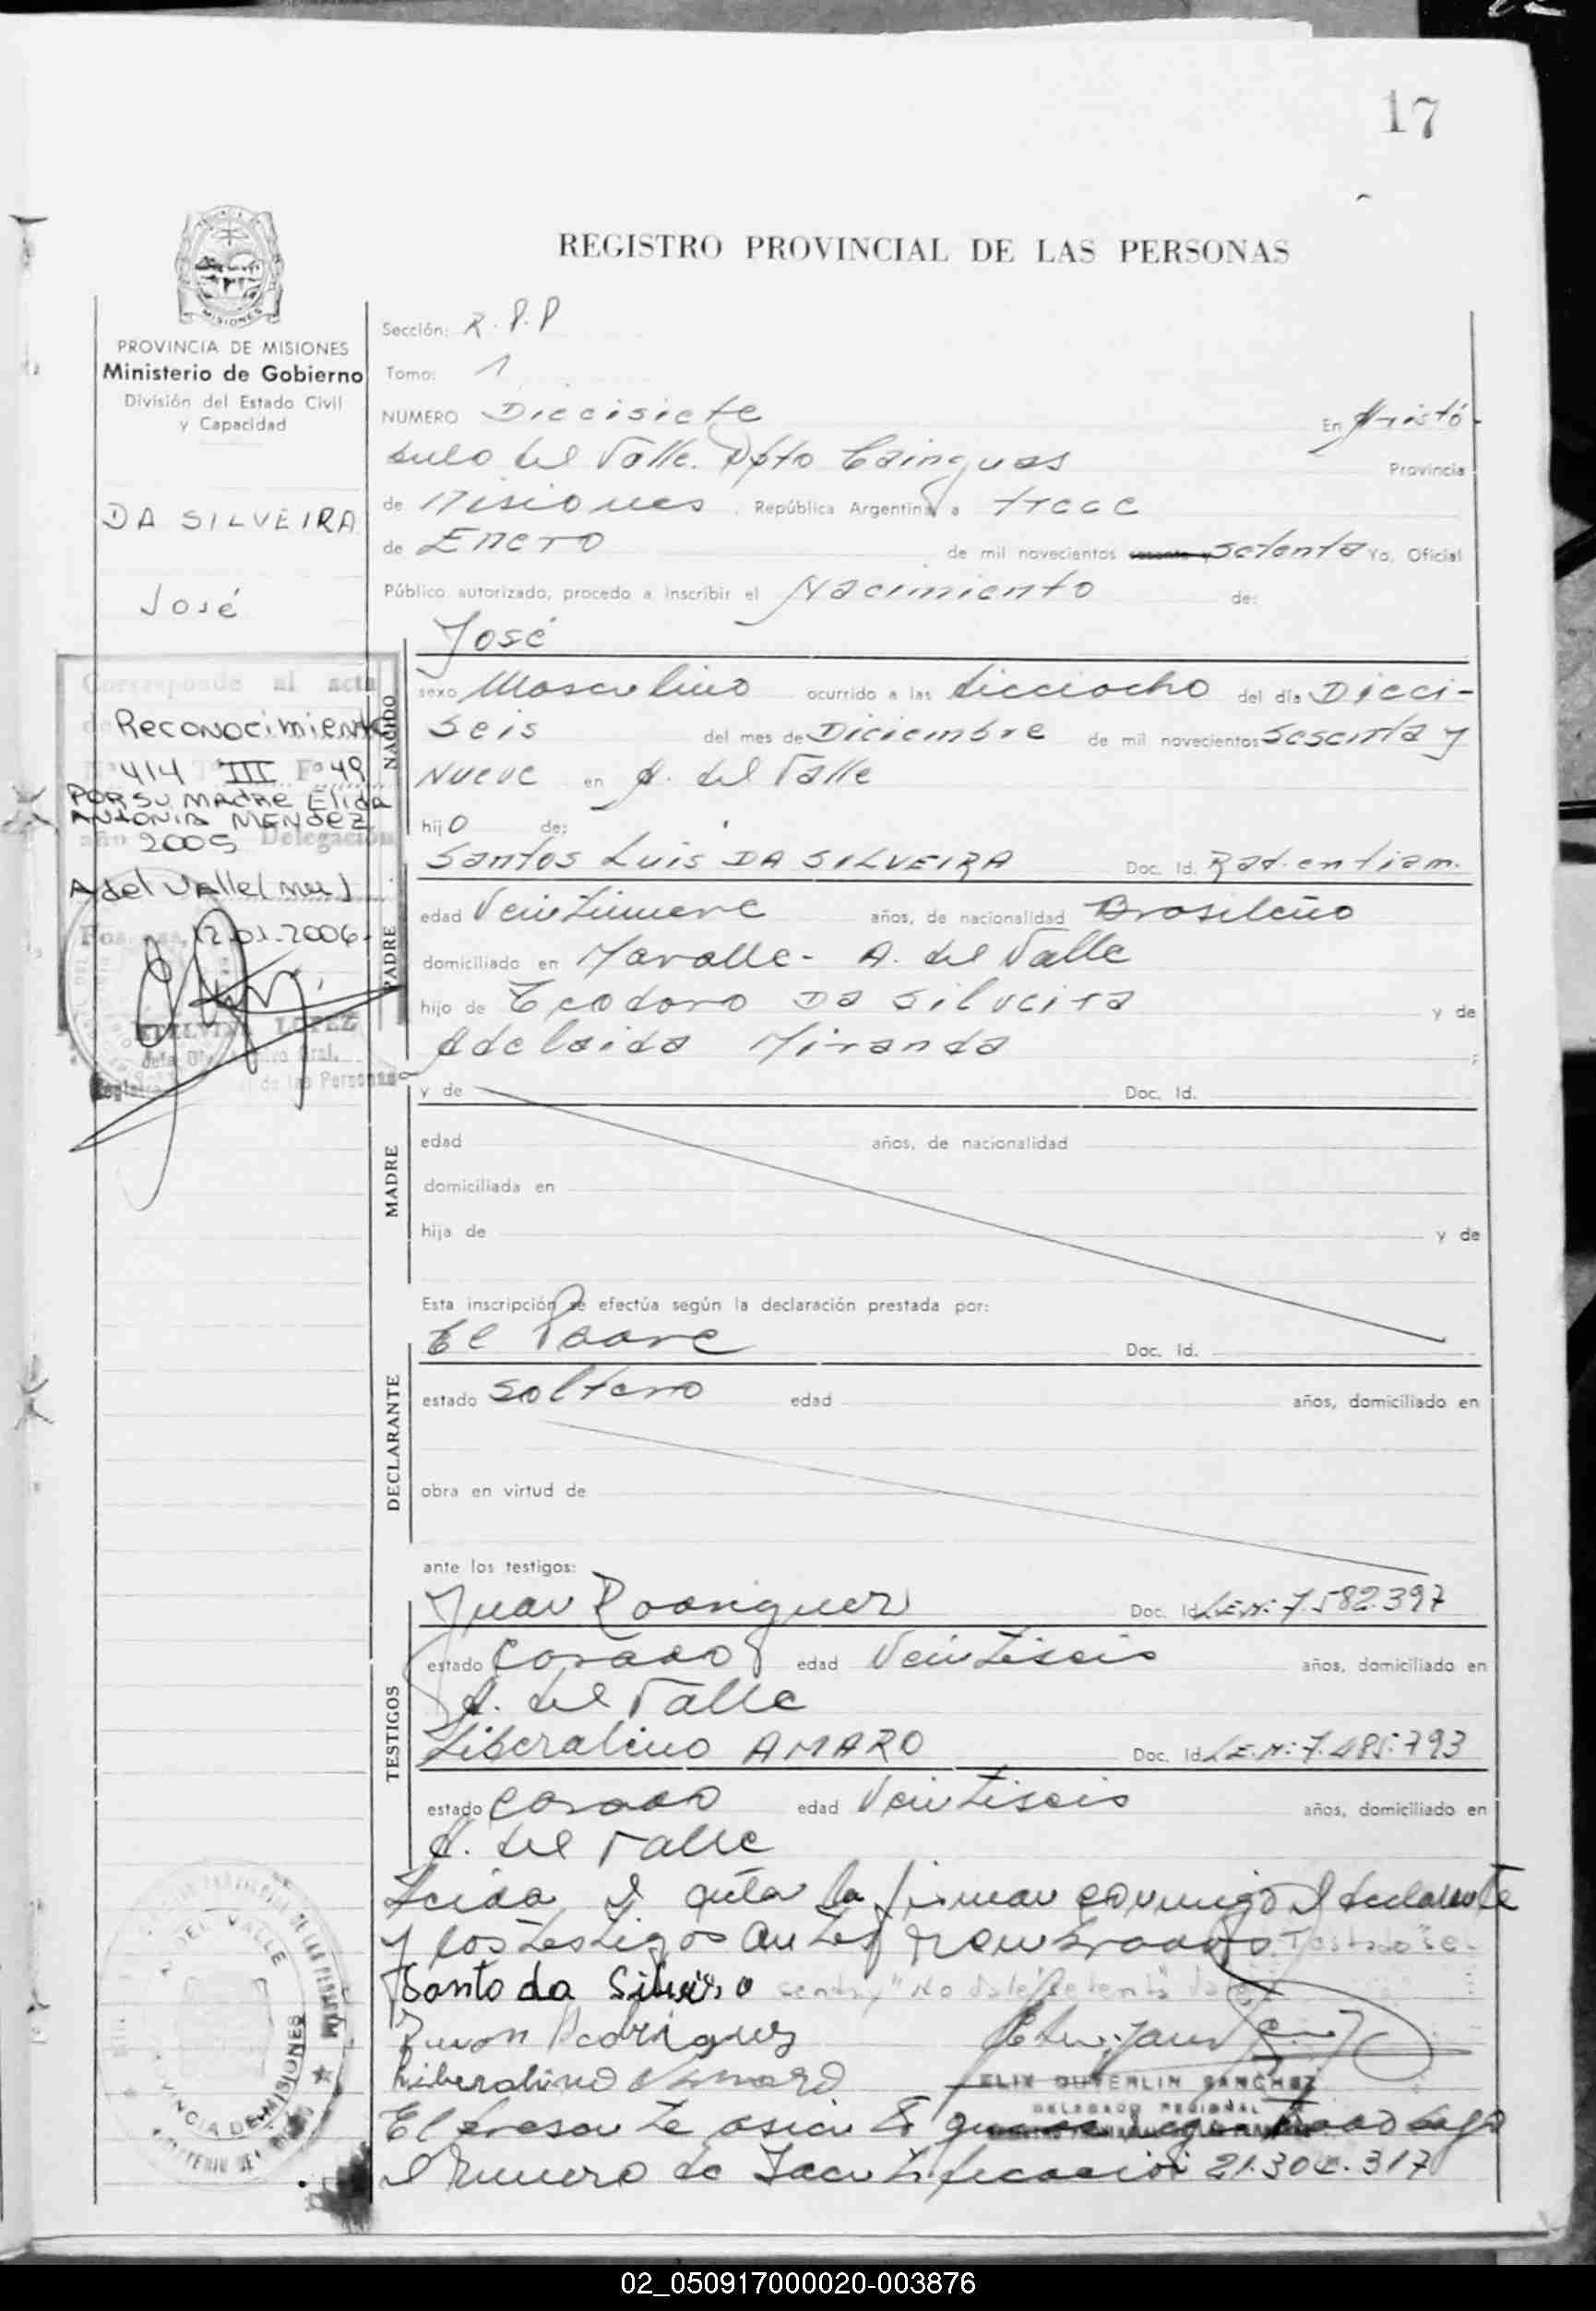 17
REGISTRO PROVINCIAL DE LAS PERSONAS
MISIONES
PROVINCIA DE MISIONES
Ministerio de Gobierno
División del Estado Civil
y Capacidad
DA SILVEIRA
José
Corresponde al acta
Reconocimiento
414 III Fº 49
POR SU MADRE Elida
ANTONIA MENDEZ
año 2005 Delegación
A del Valle (Mnes)
Posadas, 12.01.2006
LOPEZ
Sección: R.P.P
Tomo: 1
NUMERO Diecisiete En Aristó-
bulo del Valle. Dpto Cainguas Provincia
de Misiones, República Argentina, a trece
de Enero de mil novecientos setenta Yo, Oficial
Público autorizado, procedo a inscribir el Nacimiento de:
José
NACIDO
sexo Masculino ocurrido a las dieciocho del día Dieci-
seis del mes de Diciembre de mil novecientos sesenta y
nueve en A. del Valle
hijo de:
Santos Luis DA SILVEIRA Doc. Id. Rad. en tram.
PADRE
edad Veintinueve años, de nacionalidad Brasileño
domiciliado en A. del Valle
hijo de Teodoro Da Silveira y de
Adelaida Miranda ;
y de Doc. Id.
MADRE
edad años, de nacionalidad
domiciliada en
hija de y de
Esta inscripción se efectúa según la declaración prestada por:
El Padre Doc. Id.
DECLARANTE
estado soltero edad años, domiciliado en
obra en virtud de
ante los testigos:
Juan Rodriguez Doc. Id. L.E.Nº: 7.582.397
TESTIGOS
estado Casado edad Veintiseis años, domiciliado en
A. del Valle
Liberalino AMARO Doc. Id. L.E.Nº: 7.485.793
estado Casado edad Veintiseis años, domiciliado en
A. del Valle
Leida el acta la firman conmigo el declarante
y los testigos antes nombrados. Testado "se
senta y" No vale "setenta" Vale
Santo da Silveira
Juan Rodriguez
Liberalino Amaro
FELIX DUVERLIN SANCHEZ
DELEGADO REGIONAL
A. DEL VALLE
PROVINCIA DE MISIONES
El presente asiento queda registrado bajo
el Numero de Identificación 21.302.317
02_050917000020-003876